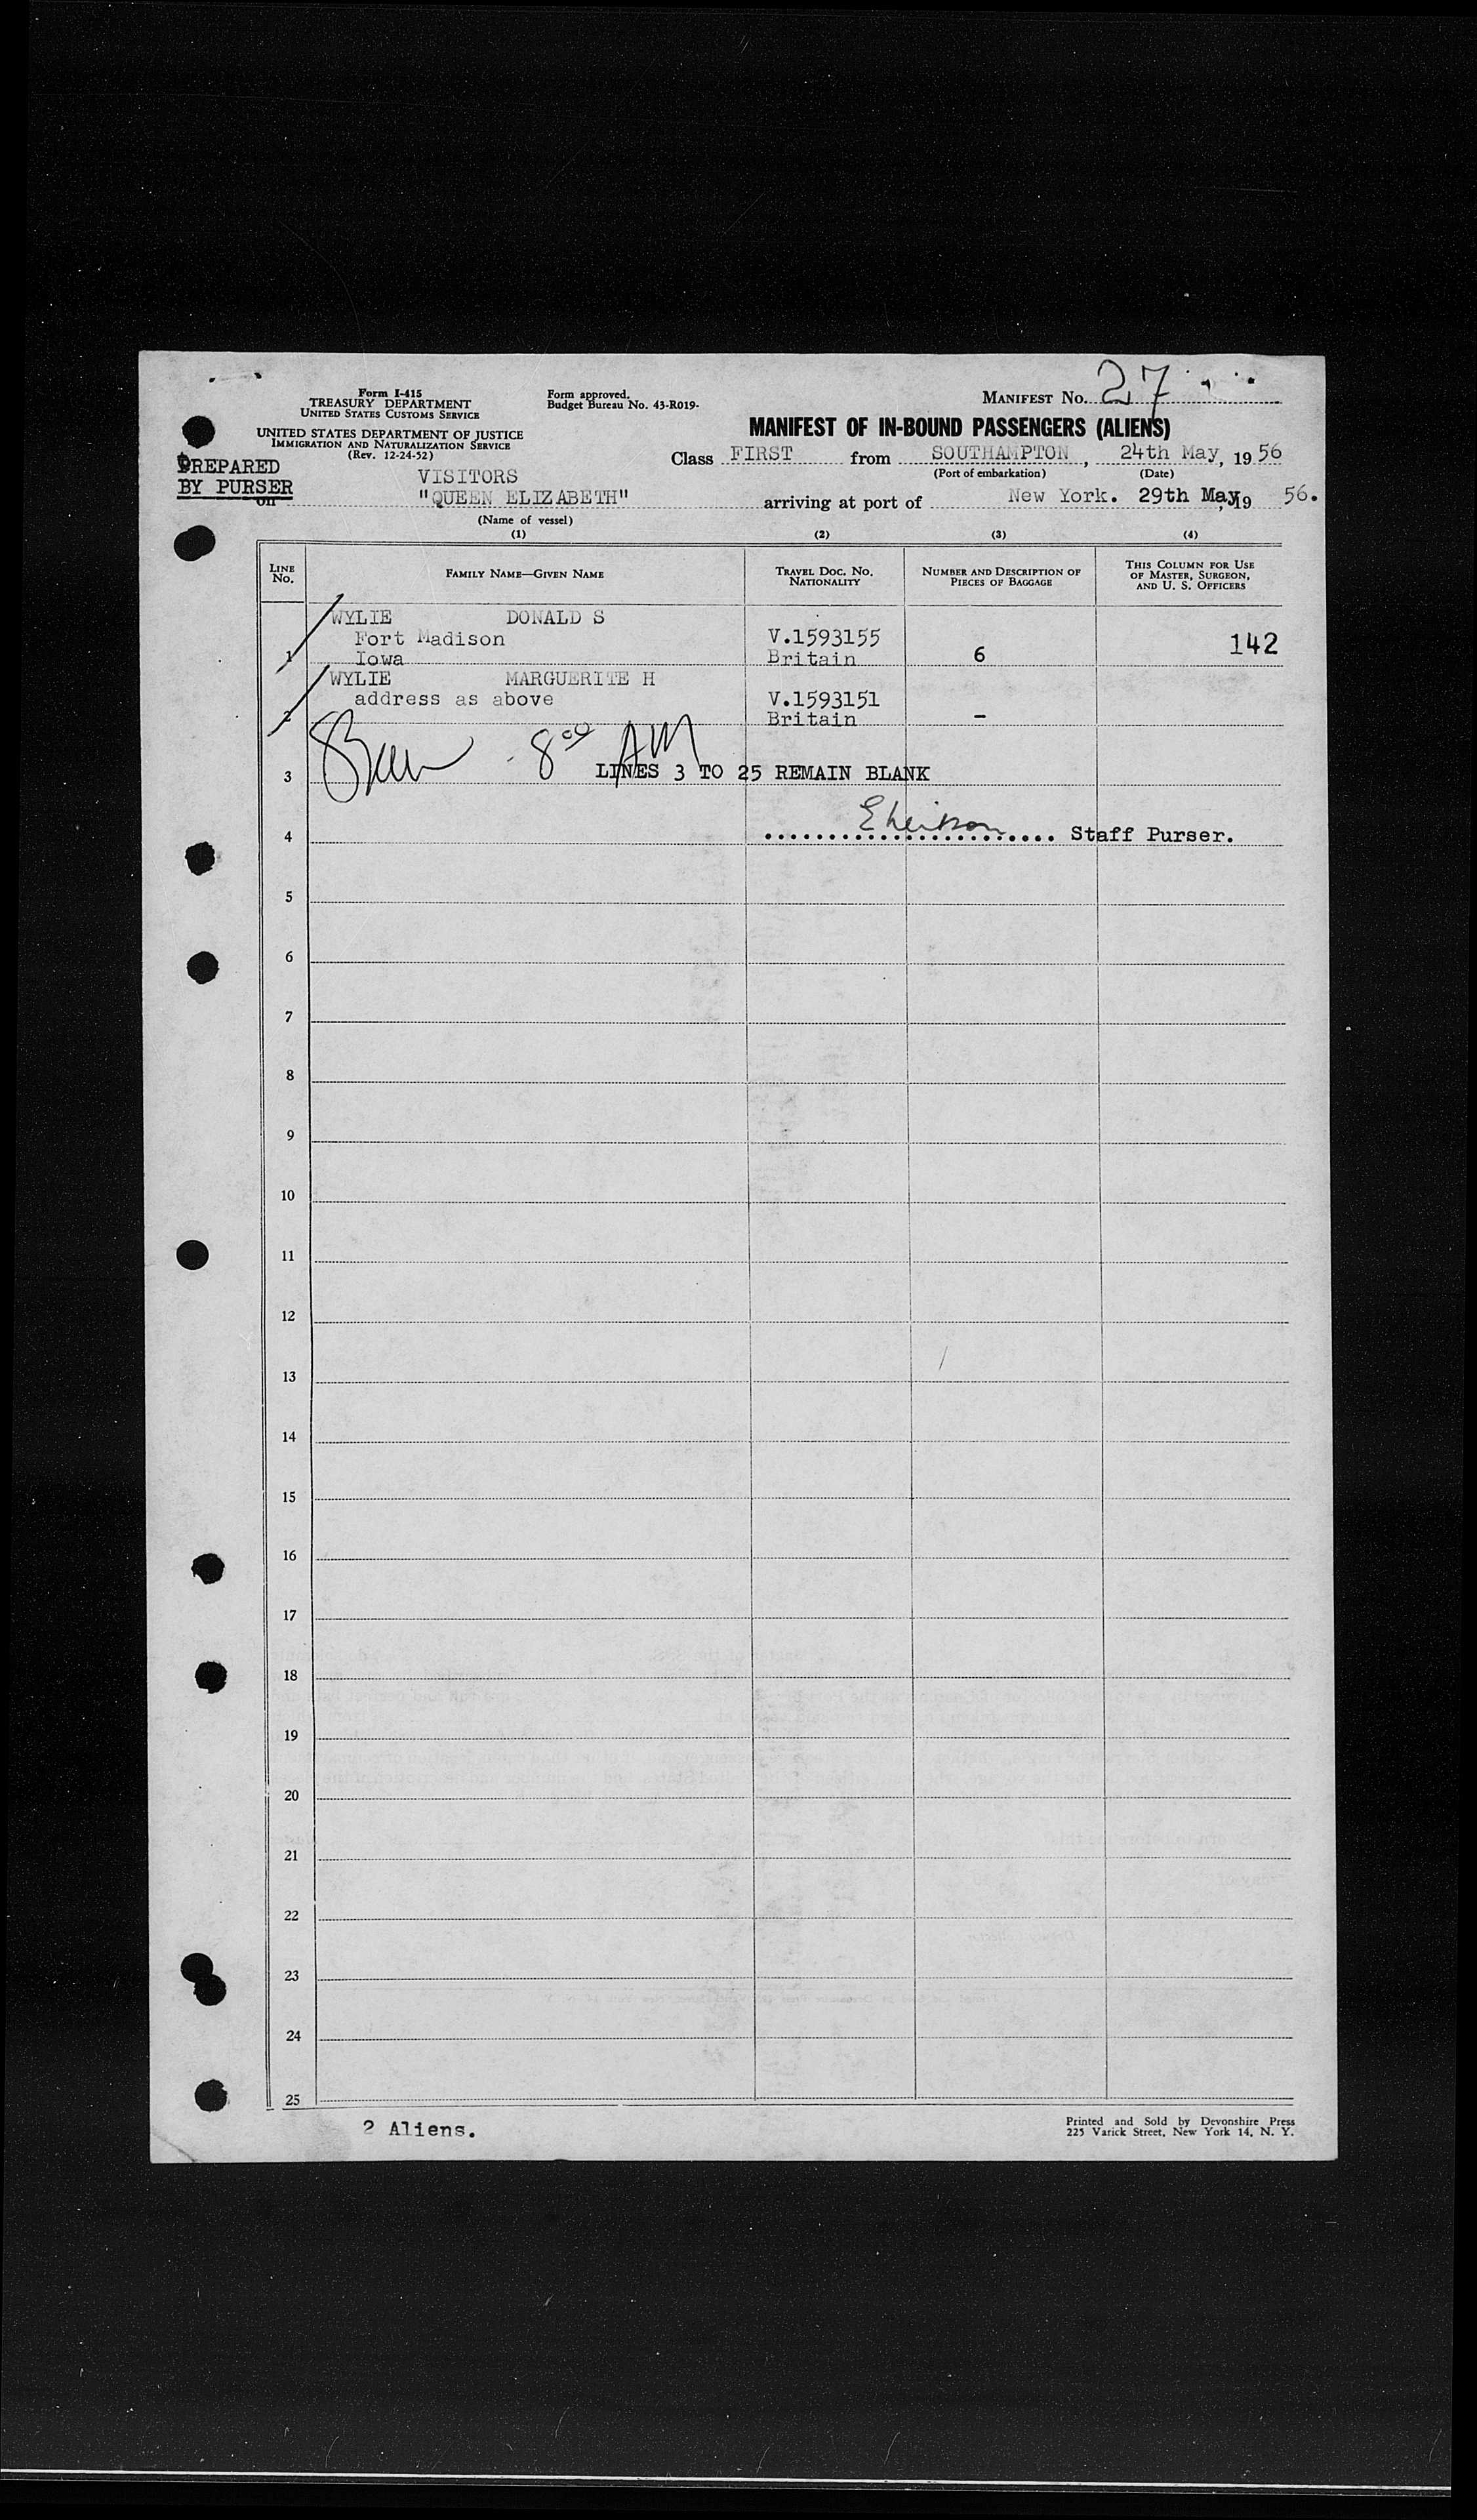 Form I-415
TREASURY DEPARTMENT
UNITED STATES CUSTOMS SERVICE
UNITED STATES DEPARTMENT OF JUSTICE
IMMIGRATION AND NATURALIZATION SERVICE
(Rev. 12-24-52)
Form approved.
Budget Bureau No. 43-R019-
MANIFEST NO. 27
MANIFEST OF IN-BOUND PASSENGERS (ALIENS)
Class FIRST from SOUTHAMPTON, 24th May, 19 56
(Port of embarkation) (Date)
PREPARED
BY PURSER
VISITORS
on "QUEEN ELIZABETH" arriving at port of New York. 29th May, 19 56.
(Name of vessel)
(1) (2) (3) (4)
LINE NO. FAMILY NAME—GIVEN NAME TRAVEL DOC. NO. NATIONALITY NUMBER AND DESCRIPTION OF PIECES OF BAGGAGE THIS COLUMN FOR USE OF MASTER, SURGEON, AND U. S. OFFICERS
WYLIE DONALD S
Fort Madison V.1593155
1 Iowa Britain 6 142
WYLIE MARGUERITE H
address as above V.1593151
2 Britain -
8 00 AM
3 LINES 3 TO 25 REMAIN BLANK
4 Staff Purser.
5
6
7
8
9
10
11
12
13
14
15
16
17
18
19
20
21
22
23
24
25
2 Aliens.
Printed and Sold by Devonshire Press
225 Varick Street, New York 14, N. Y.